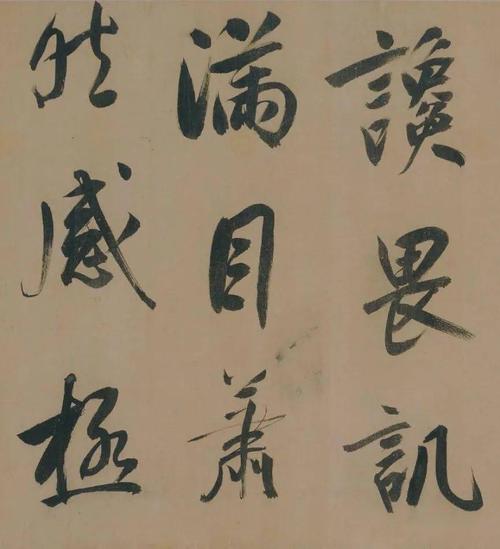 讒畏譏
滿目蕭
然感極